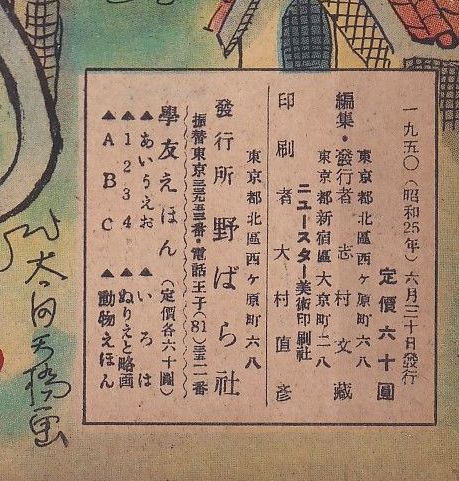 一九五〇（昭和25年）六月三十日發行
定價六十圓
東京都北區西ヶ原町六八
編集・發行者 志村文藏
東京都新宿區大京町二八
ニュースター美術印刷社
印刷者 大村直彦
東京都北區西ヶ原町六八
發行所 野ばら社
振替東京三九五三番・電話王子（81）三二一番
學友えほん（定價各六十圓）
▲あいうえお ▲いろは
▲1234 ▲ぬりえと略画
▲ABC ▲動物えほん
大河天橋画